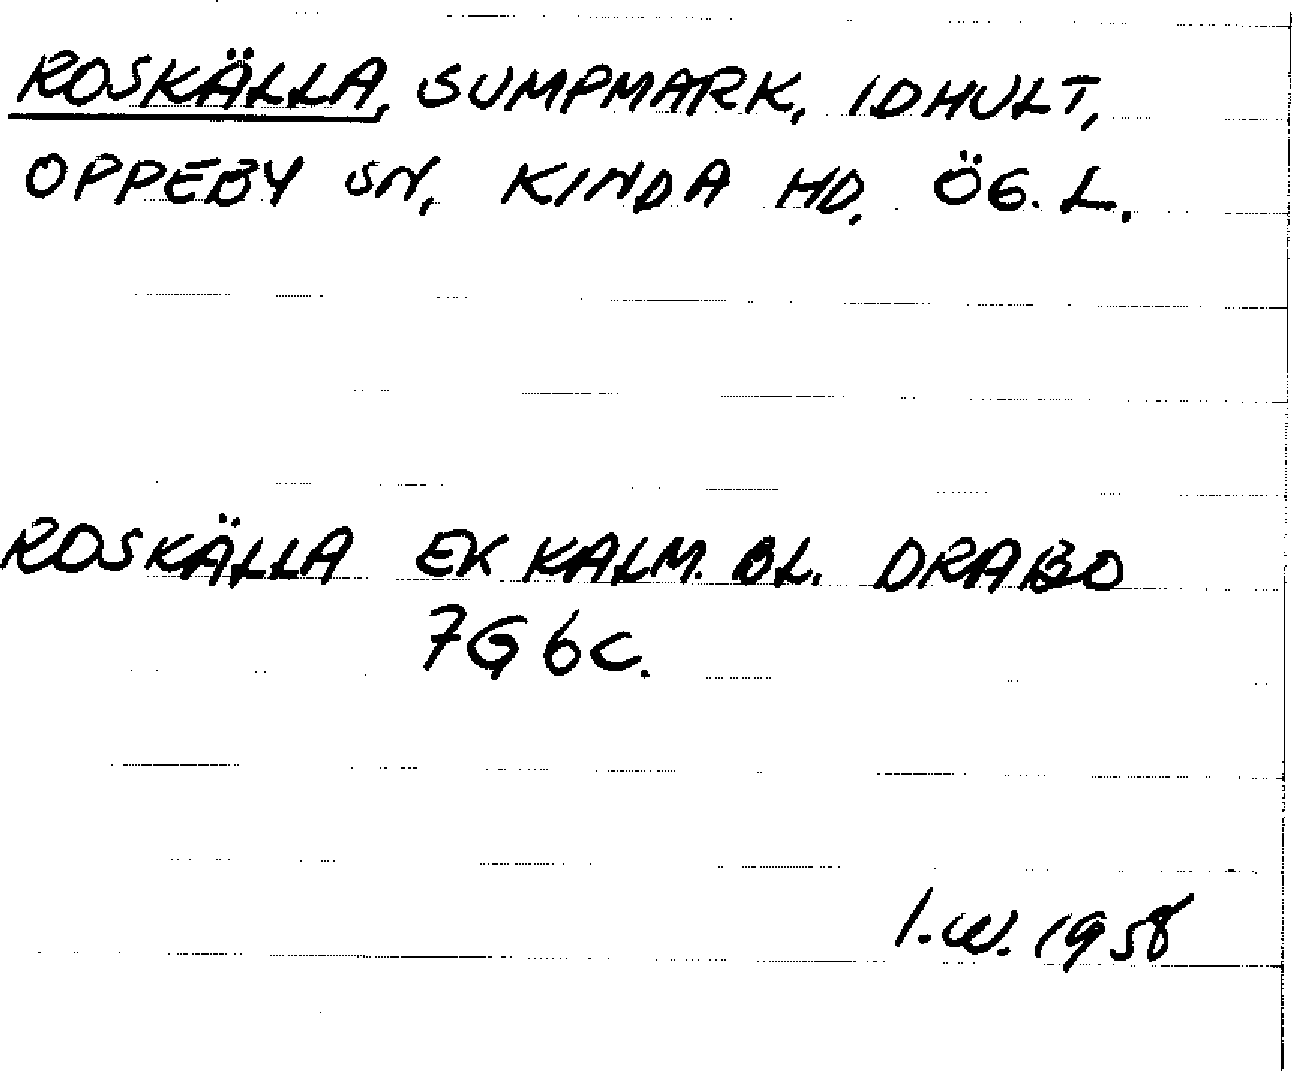 ROSKÄLLA, SUMPMARK, IDHULT,
OPPEBY SN, KINDA HD, ÖG. L.
ROSKÄLLA EK KALM. BL. DRABO
7G 6C.
I.W. 1958